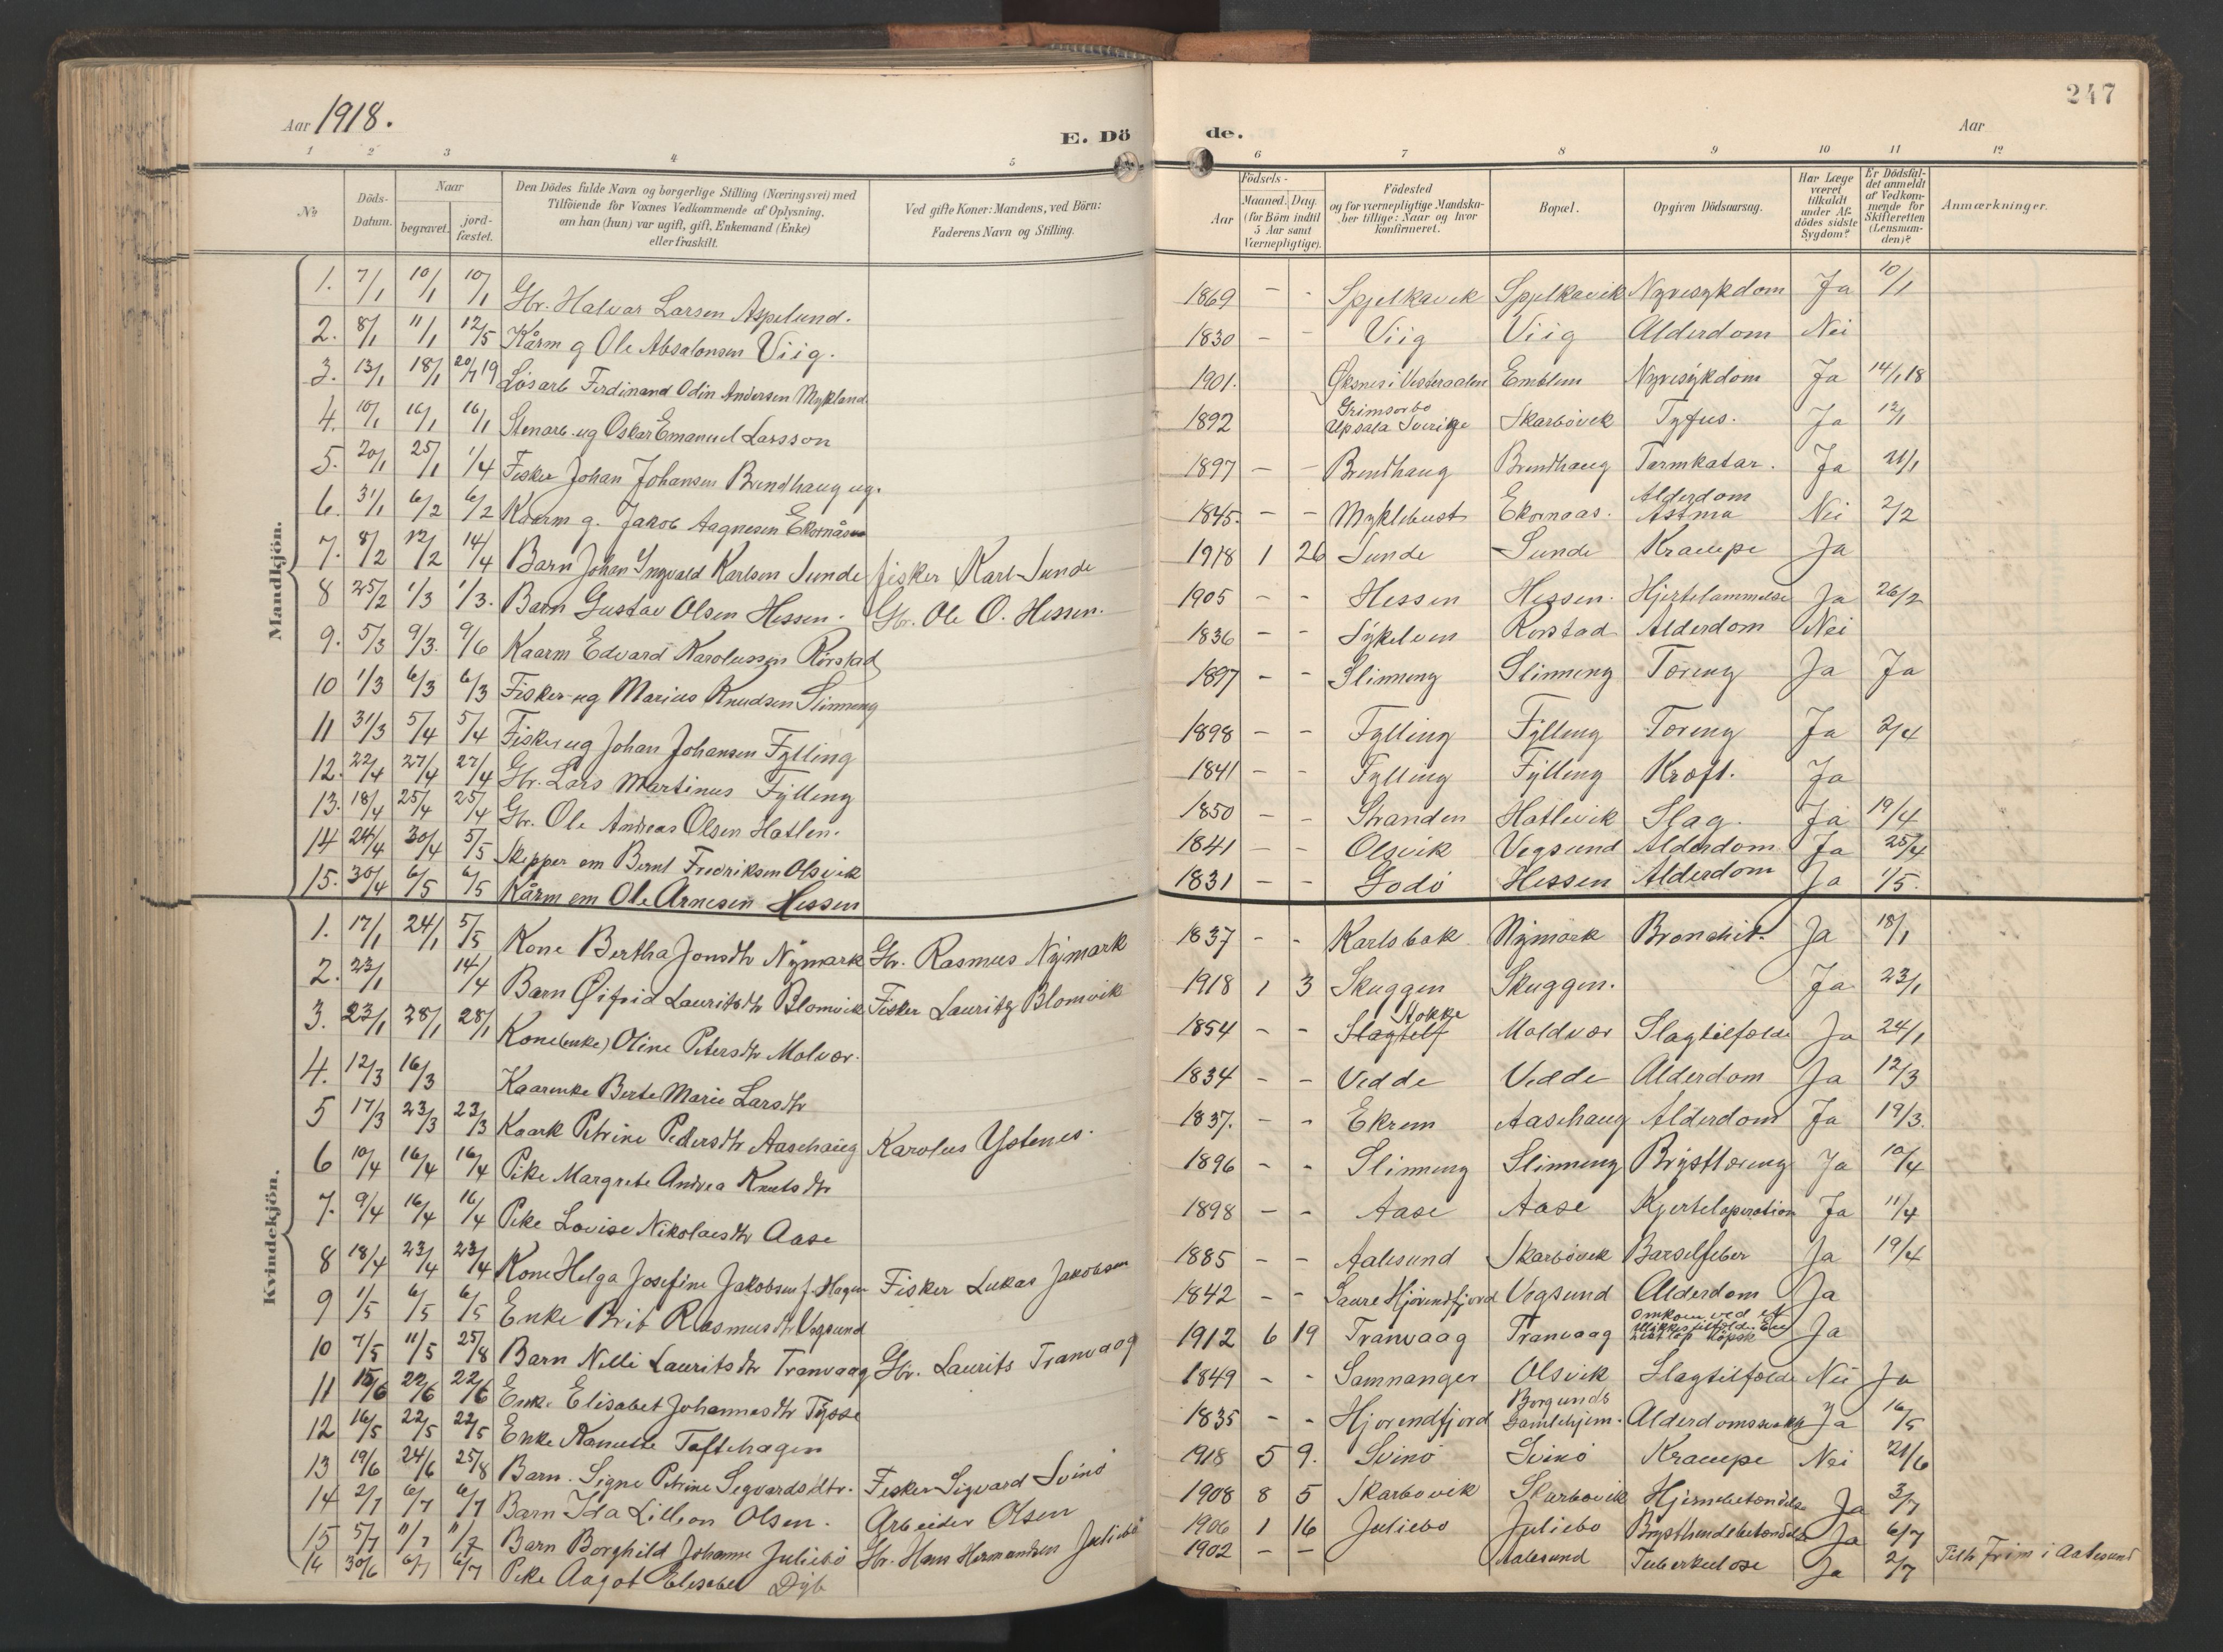 Aar 1918.
E. Dö
de.
247
Aar
1 2 3 4 5 6 7 8 9 10 11 12
No
Döds-Datum.
Naar
begravet.
jord-fæstet.
Den Dödes fulde Navn og borgerlige Stilling (Næringsvei) med
Tilföiende for Voxnes Vedkommende af Oplysning,
om han (hun) var ugift, gift, Enkemand (Enke)
eller fraskilt.
Ved gifte Koner: Mandens, ved Börn:
Faderens Navn og Stilling.
Födsels-
Aar
Maaned. Dag.
(for Börn indtil
5 Aar samt
Værnepligtige).
Födested
og for værnepligtige Mandska-
ber tillige: Naar og hvor
konfirmeret.
Bopæl.
Opgiven Dödsaarsag.
Har Læge
været
tilkaldt
under Af-
dödes sidste
Sygdom?
Er Dödsfal-
det anmeldt
af Vedkom-
mende for
Skifteretten
(Lensman-
den)?
Anmærkninger.
Mandkjön.
1. 7/1 10/1 10/1 Gbr. Halvar Larsen Aspelund. 1869 - - Spjelkavik Spjelkavik Nyresykdom Ja 10/1
2. 8/1 11/1 12/5 Kårm g Ole Absalonsen Viig. 1830 - - Viig Viig Alderdom Nei
3. 13/1 18/1 20/7 19 Løsarb Ferdinand Odin Andersen Mykland 1901. Øksnes i Vesteraalen Emblem Nyresykdom Ja 14/1 18
4. 10/1 16/1 16/1 Stenarb. ug Oskar Emanuel Larsson 1892 Grimsorbo Upsala Sverige Skarbövik Tyfus. Ja 12/1
5. 20/1 25/1 1/4 Fisker Johan Johansen Brendhaug ug. 1897 - - Brendhaug Brendhaug Tarmkatar. Ja 21/1
6. 31/1 6/2 6/2 Kaarm g. Jakob Aagnesen Ekornåsen 1845. - - Myklebust Ekornaas. Alderdom Astma Nei 2/2
7. 8/2 12/2 14/4 Barn Johan Ingvald Karlsen Sunde fisker Karl Sunde 1918 1 26 Sunde Sunde Krampe Ja
8 25/2 1/3 1/3. Barn Gustav Olsen Hessen. Gbr. Ole O. Hessen. 1905 - - Hessen Hessen. Hjertelammelse Ja 26/2
9. 5/3 9/3. 9/6 Kaarm Edvard Karolussen Rörstad 1836 - - Sykelven Rorstad Alderdom Nei
10 1/3 6/3 6/3 Fisker ug Marius Knudsen Slinning 1897 - - Slinning Slinning Tæring Ja Ja
11 31/3 5/4 5/4 Fisker ug Johan Johansen Fylling 1898 - - Fylling Fylling Tæring Ja 2/4
12. 22/4 27/4 27/4 Gbr. Lars Martinus Fylling 1841 - - Fylling Fylling Kræft. Ja
13. 18/4 25/4 25/4 Gbr. Ole Andreas Olsen Hatlen. 1850 - - Stranden Hatlevik Slag. Ja 19/4
14 24/4 30/4 5/5 Skipper em Bernt Fredriksen Olsvik 1841 - - Olsvik Vegsund Alderdom Ja 25/4
15. 30/4 6/5 6/5 Kårm em Ole Arnesen Hessen 1831 - - Godö Hessen Alderdom Ja 1/5.
Kvindekjön.
1. 17/1 24/1 5/5 Kone Bertha Jonsdtr Nymark Gbr. Rasmus Nymark 1837 - - Karlsbak Nymark Bronchit. Ja 18/1
2. 23/1 14/4 Barn Lauritsdtr Blomvik Fisker Lauritz Blomvik 1918 1 3 Skuggen Skuggen. Ja 23/1
3. 23/1 28/1 28/1 Kone (enke) Oline Petersdtr Molvær. 1854 - - Stokke Moldvær Slagtilfælde Ja 24/1
4. 12/3 16/3 Kaarenke Berte Marie Larsdtr 1834 - - Vedde Vedde Alderdom Ja 12/3
5 17/3 23/3 23/3 Kaark Petrine Pedersdtr Aasehaug Karolus Ystenes. 1837. - - Ekrem Aasehaug Alderdom Ja 19/3.
6 10/4 16/4 16/4 Pike Margrete Andrea Knutsdtr 1896 - - Slinning Slinning Brysttæring Ja 10/4
7. 9/4 16/4 16/4 Pike Lovise Nikolaisdtr Aase 1898 - - Aase Aase Kjerteloperation Ja 11/4
8 18/4 23/4 23/4 Kone Helga Josefine Jakobsen f. Hagen Fisker Lukas Jakobsen 1885 - - Aalesund Skarbövik Barselfeber Ja 19/4
9 1/5 6/5 6/5 Enke Brit Rasmusdtr Vegsund 1842 - - Saure Hjörendfjord Vegsund Alderdom Ja
10 7/5 11/5 25/8 Barn Nelli Lauritsdtr Tranvaag Gbr. Laurits Tranvaag 1912 6 19 Tranvaag Tranvaag Omkom ved et Ja
11 15/6 22/6 22/6 Enke Elisabet Johannesdtr Tysse 1849 - - Samnanger Olsvik Slagtilfælde Nei Ja
12 16/5 22/5 22/5 Enke Tafthagen 1835 - - Hjorendfjord Borgunds Gamlehjem. Ja 16/5
13 19/6 24/6 25/8 Barn. Signe Petrine Segvardsdtr. Fisker Sigvard Svinö 1918 5 9. Svinö Svinö Krampe Nei 21/6
14 2/7 6/7 6/7 Barn Ida Lillean Olsen. Arbeider Olsen 1908 8 5 Skarbovik Skarbovik Hjernebetændelse Ja 3/7
15 5/7 11/7 11/7 Barn Borghild Johanne Juliebö Gbr. Hans Hermansen Juliebö 1906 1 16 Juliebö Juliebö Brysthindebetændelse Ja 6/7
16 30/6 6/7 6/7 Pike Aagot Elisabet Dyb 1902 - - Aalesund Tuberkulose Ja 2/7 i Aalesund